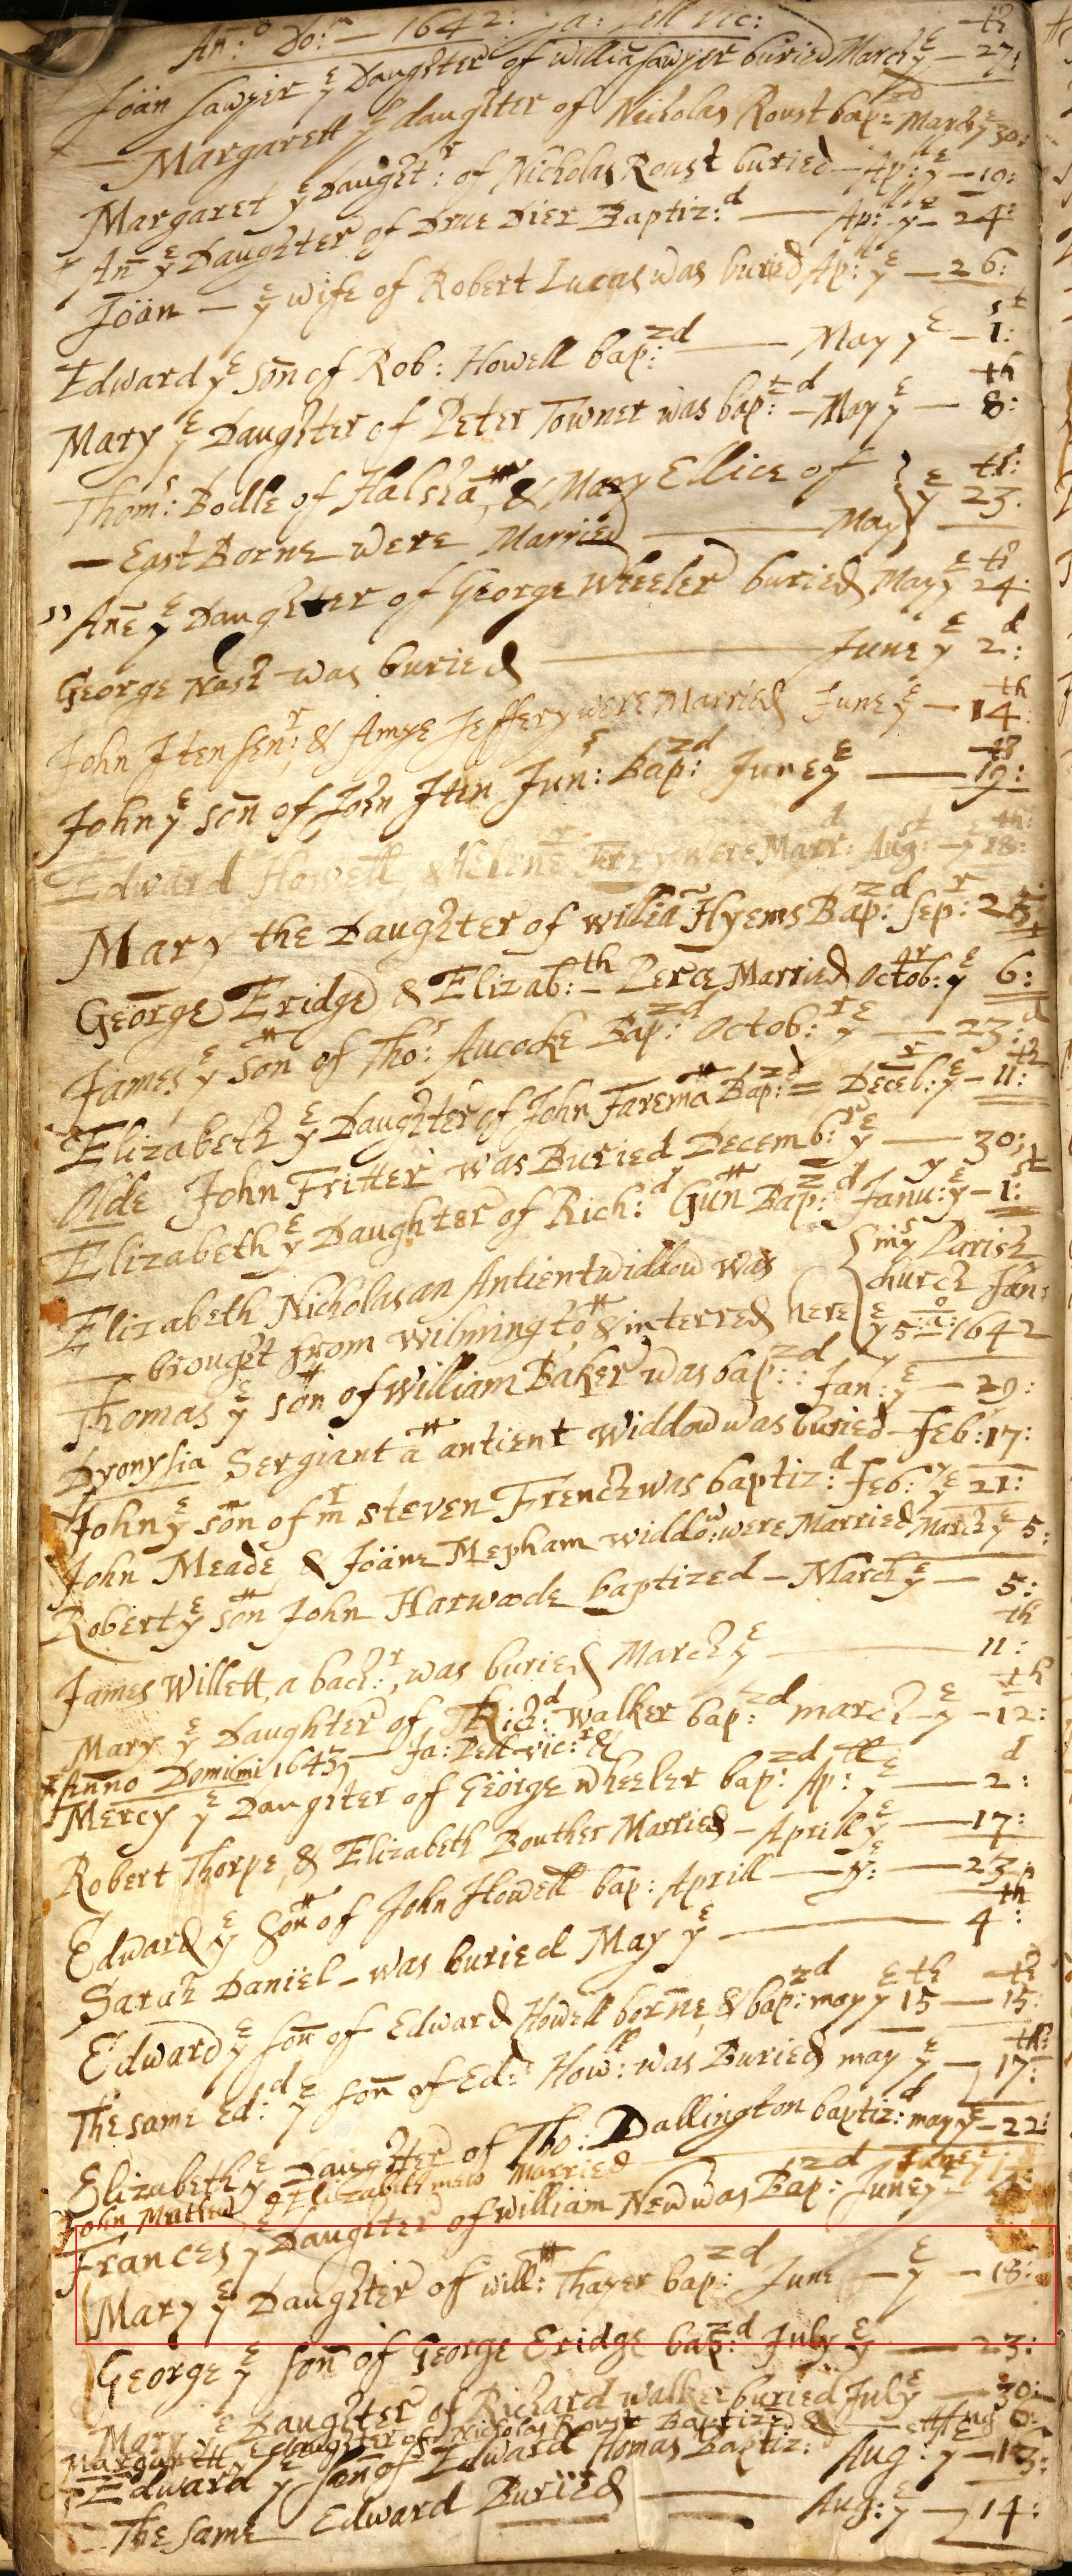 An:o Do: — 1642: Ja: Pell vic:
Jöän Sawyer ye Daughter of Willia Sawyer buried March ye — 27th:
— Margarett ye daughter of Nicholas Roust bap:zd March ye 30:
Margaret ye Daught:r of Nicholas Roust buried — Ap: ye — 10:
An ye Daughter of Drue Dier Baptiz:d — Ap: ye — 24:
Jöän — ye wife of Robert Lucas was buried Ap: ye — 26:
Edward ye son of Rob: Howell bap:zd — May ye — 1st:
Mary ye Daughter of Peter Towner was bap:zd — May ye — 8th:
Thom:s Bodle of Halsha, & Mary Ellice of
— East Borne were Married — May ye 23th:
Ane ye Daughter of George Wheeler buried May ye 24th:
George Nash was buried — June ye 2d:
John Iten Sen:r & Amye Jeffery were Married June ye — 14th:
John ye son of John Iten Jun:r Bap:zd June ye — 19th:
Edward Howell, & Helene were Marr:d Aug:st — ye 18th:
Mary the Daughter of Willia Hyems Bap:zd Sep:r 25
George Eridge & Elizab:th Perce Married Octob:r ye 6:
James ye son of Tho:s Aucocke Bap:zd Octob:r ye — 23:d
Elizabeth ye Daughter of John Farema Bap:zd = Decēb:r ye — 11:th
Olde John Fritter was Buried Decemb:r ye — 30:
Elizabeth ye Daughter of Rich:d Gun Bap:zd Janu:y ye — 1:st
Elizabeth Nicholas an Antient widdow was
— brought from Wilmingto & interred here { in ys Parish church Jan: ye 5 a:o 1642
Thomas ye son of William Baker was bap:zd : Jan: ye — 29:
Dyonysia Sergiant a antient Widdow was buried — Feb: 17:
John ye son of mr Steven French was baptiz:d Feb:y ye 21:
John Meade & Jöäne Mepham widdo:w were Married March ye 5:
Robert ye son John Harwode baptized — March ye — 5:
James Willett, a bach:r, was buried March ye — 11th:
Mary ye Daughter of Rich:d Walker bap:zd march — ye — 12th:
Anno Domini 1643 — Ja: Pell vic:r &
Mercy ye Daughter of George Wheeler bap:zd Ap:ll ye — 2d:
Robert Thorpe, & Elizabeth Bouther Married — Aprill ye — 17:
Edward ye son of John Howell bap: Aprill — ye: — 23:
Sarah Daniel — was buried May ye — 4th:
Edward ye son of Edward Howell borne, & bap:zd may ye 15th — 15th:
The same Ed:d ye son of Ed:d How:ll was Buried may ye — 17th:
Elizabeth ye Daughter of Tho: Dallington baptiz:d may ye — 22:
John Mathew & Elizabeth Married June
Frances ye Daughter of William New was Bap:zd June ye
Mary ye Daughter of Will: Thayer bap:zd June — ye — 18:
George ye son of George Eridge bap:zd July ye — 23:
Mary ye Daughter of Richard Walker buried July ye — 30:
Margarett ye daughter of Nicholas Roust Baptized — Aug 6:
Edward ye son of Edward Homas Baptiz:d Aug: ye — 13:
— The same Edward Buried — Aug: ye — 14: